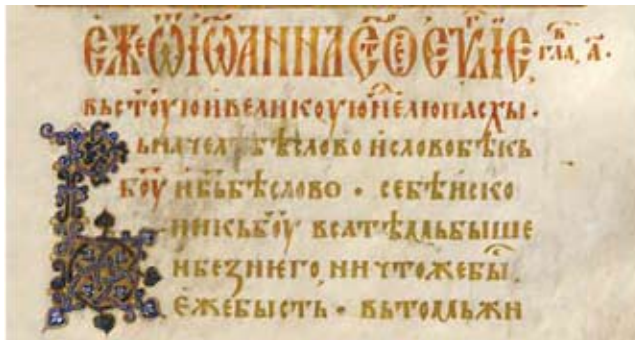 ЕЖЕ Ѿ ІѠАННА СТ҃ОЕ ЕѴ҃ЛІЕ, гла, а҃.
вь ст҃оую и великоую не҃лю пасхы ·
Ь начелѣ бѣ слово и слово бѣ кь
боу и бь бѣ слово · се бѣ иско
ни кь боу вса тѣмь быше
и без него ничтоже бы
еже бысть · вь томь жи